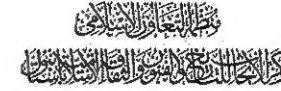 منظمة التعاون الإسلامي
مركز الأبحاث للتاريخ والفنون والثقافة الإسلامية باستانبول